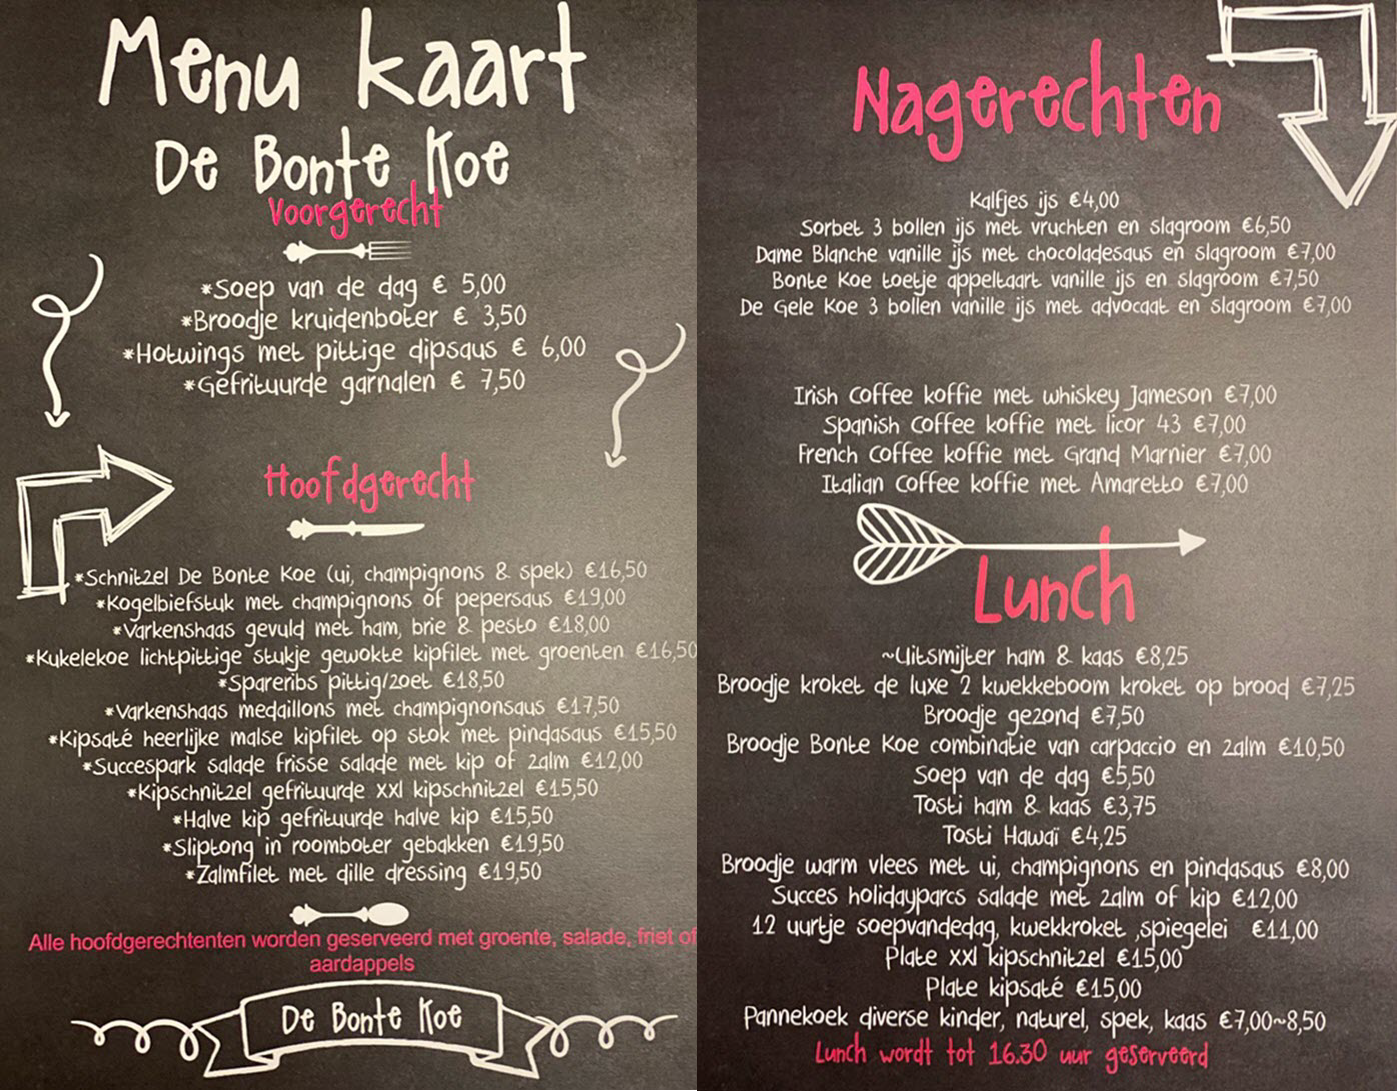 Menu kaart
De Bonte Koe
Voorgerecht
*Soep van de dag € 5,00
*Broodje kruidenboter € 3,50
*Hotwings met pittige dipsaus € 6,00
*Gefrituurde garnalen € 7,50
Hoofdgerecht
*Schnitzel De Bonte Koe (ui, champignons & spek) €16,50
*Kogelbiefstuk met champignons of pepersaus €19,00
*Varkenshaas gevuld met ham, brie & pesto €18,00
*Kukelekoe lichtpittige stukje gewokte kipfilet met groenten €16,50
*Spareribs pittig/zoet €18,50
*Varkenshaas medaillons met champignonsaus €17,50
*Kipsaté heerlijke malse kipfilet op stok met pindasaus €15,50
*Succespark salade frisse salade met kip of zalm €12,00
*Kipschnitzel gefrituurde xxl kipschnitzel €15,50
*Halve kip gefrituurde halve kip €15,50
*Sliptong in roomboter gebakken €19,50
*Zalmfilet met dille dressing €19,50
Alle hoofdgerechtenten worden geserveerd met groente, salade, friet of
aardappels
De Bonte Koe
Nagerechten
Kalfjes ijs €4,00
Sorbet 3 bollen ijs met vruchten en slagroom €6,50
Dame Blanche vanille ijs met chocoladesaus en slagroom €7,00
Bonte Koe toetje appeltaart vanille ijs en slagroom €7,50
De Gele Koe 3 bollen vanille ijs met advocaat en slagroom €7,00
Irish Coffee koffie met whiskey Jameson €7,00
Spanish Coffee koffie met licor 43 €7,00
French Coffee koffie met Grand Marnier €7,00
Italian Coffee koffie met Amaretto €7,00
Lunch
~Uitsmijter ham & kaas €8,25
Broodje kroket de luxe 2 kwekkeboom kroket op brood €7,25
Broodje gezond €7,50
Broodje Bonte Koe combinatie van carpaccio en zalm €10,50
Soep van de dag €5,50
Tosti ham & kaas €3,75
Tosti Hawaï €4,25
Broodje warm vlees met ui, champignons en pindasaus €8,00
Succes holidayparcs salade met zalm of kip €12,00
12 uurtje soepvandedag, kwekkroket ,spiegelei €11,00
Plate xxl kipschnitzel €15,00
Plate kipsaté €15,00
Pannekoek diverse kinder, naturel, spek, kaas €7,00~8,50
Lunch wordt tot 16.30 uur geserveerd